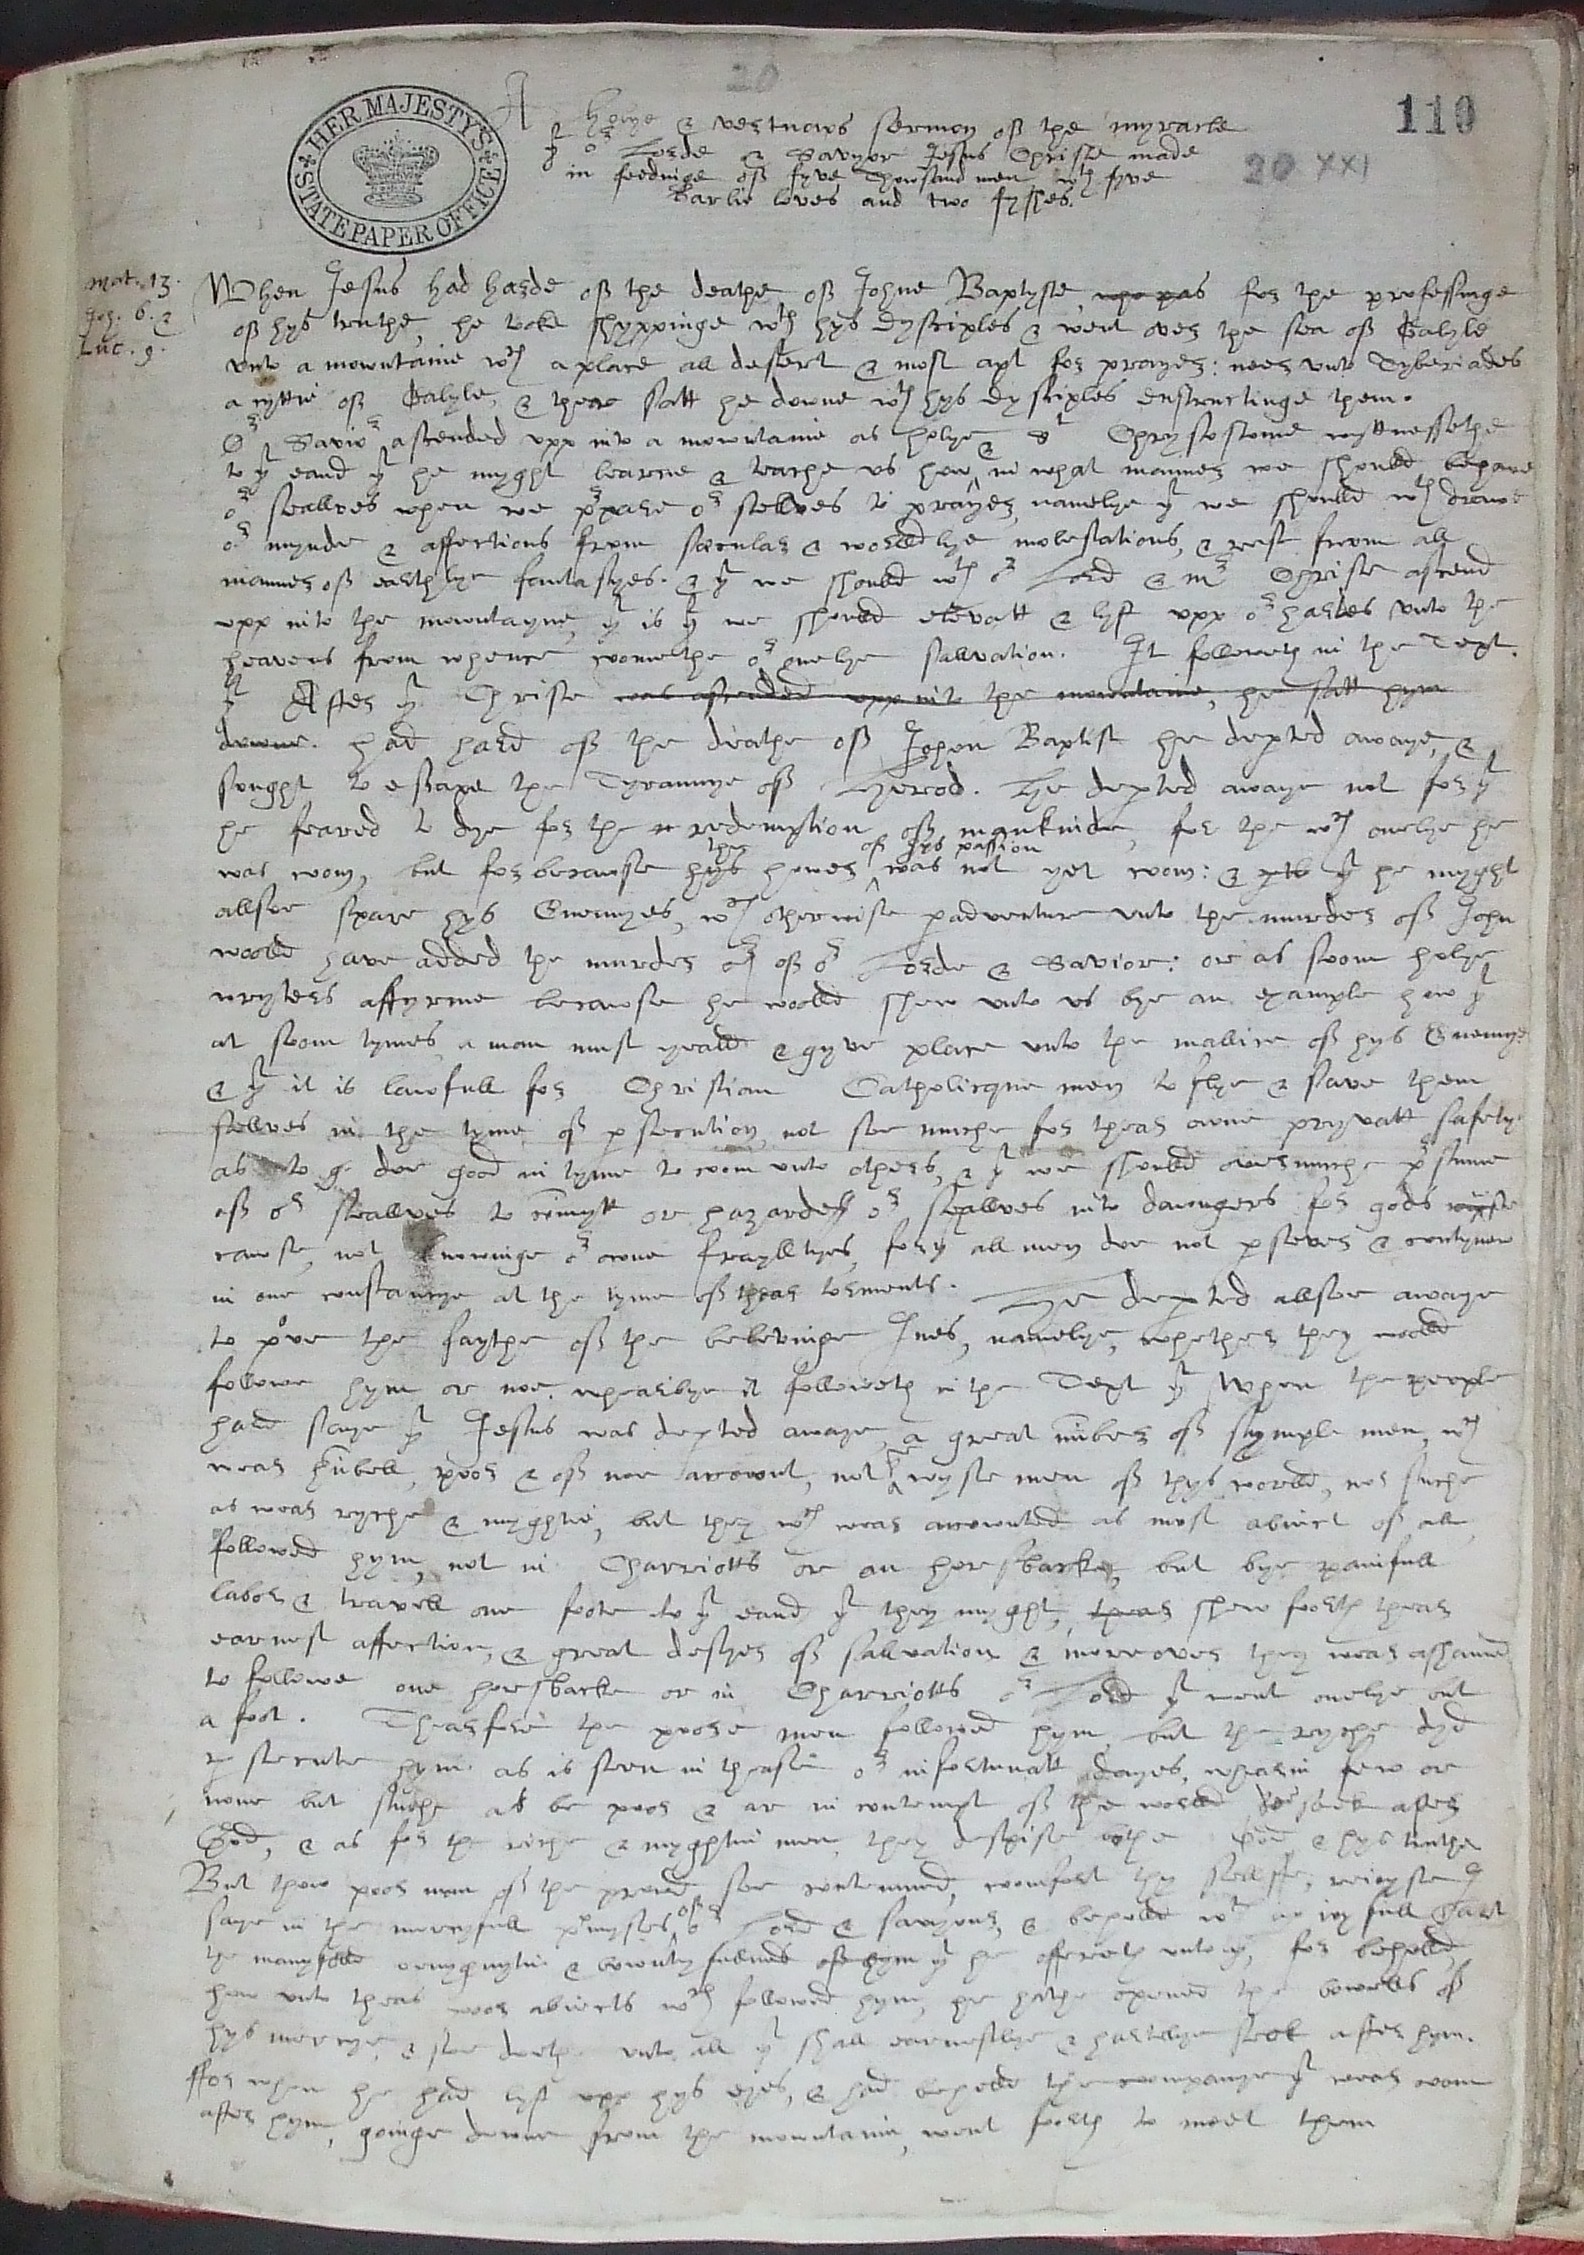 20
110
20 XXI
HER MAJESTY'S STATE PAPER OFFICE
A holye & vertuows sermon off the myracle
yt or Lorde & Savyor Jesus Christe made
in feedinge off fyve Thowsand men wth fyve
Barlie loves and two fysshes.
Mat. 13.
Joh. 6. &
Luc. 9.
When Jesus had harde off the deathe off Johne Baptyste, who was for the professinge
off hys truthe, he toke shyppinge wth hys dysciples & went over the sea off Galyle
vnto a mowntaine wch a place all desert & most apt for prayer: neer vnto Tyberiades
a cyttie off Galyle, & thear satt he downe wth hys dysciples enstructinge them.
Or Savior ascended vpp into a mowntaine as holye St Chrysostome wyttnessethe
to yt eand yt he myght learne & teache vs how & in what manner we should behave
or seallves when we prpare or sellves to prayer, namelye yt we should wth drawe
or mynde & affections from secular & worldlye molestations, & rest from all
manner off earthlye fantasyes. & yt we should wth or Lord & mr Christe ascend
vpp into the mowntayne, yt is yt we should elevatt & lyft vpp or hartes vnto the
heavens from whence comethe or onelye sallvation. It followeth in the Text.
yt After yt Christe was ascended vpp into the mowntaine, he satt hym
downe. had hard off the deathe off Johen Baptist he depted awaye, &
sought to escape the Tyrannye off Herod. He depted awaye not for yt
he feared to dye for the redemption off mankinde, for the wch onelye he
was com, but for becawse hys the hower off hys passion was not yet com: & yt he myght
allsoe spare hys Enemyes, wch otherwise padventure vnto the murder off John
woolld have added the murder off or Lorde & Savior: or as soom holye
wryters affyrme becawse he woolld shew vnto vs bye an example how yt
at soom tymes a man must yealld & gyve place vnto the mallice off hys Enemye
& yt it is lawfull for Christian Catholicque men to flye & save them
sellves in the tyme off psecution, not soe muche for thear owne pryvatt safety
as to doe good in tyme to com vnto others, & yt we should overmuche prsume
off or seallves to comytt or hazarde or seallves into daungers for gods
cawse, not knowinge or owne frayllties, for yt all men doe not psever & contynew
in one constancye at the tyme off thear torments. He depted allsoe awaye
to prove the faythe off the belevinge Jues, namelye, whether they woolld
followe hym or noe, whearbye it followeth in the Text yt When the people
hard saye yt Jesus was depted awaye, a great nūber off symple men, wch
wear hūbell, poor & off noe accownt, not the wyse men off thys world, nor suche
as wear ryche & myghtie, but they wch wear accownted as most abiect off all
followed hym, not in Charriotts or on horsbacke, but bye painfull
labor & travell one foote to yt eand yt they myght thear shew foorth thear
earnest affection, & great desyer off sallvation & moreover they wear ashamed
to followe one horsbacke or in Charriotts or Lord yt went onelye out
a foot. Thearfore the poore men followed hym, but the ryche dyd
psecute hym as is seen in thease or infortunatt dayes, whearin few or
none but suche as be poor & ar in contempt off the world doe seek after
God, & as for the riche & myghtie men, they despise bothe God & hys truthe
But thow poor man off the prowd soe contemned, comfort thy sellffe, reioyse I
saye in the mercyfull prmyses off or Lord & savyour, & behold wth a ioyfull hart
the manyfolld & bowntyfullnes off hym yt he offereth vnto yt, for behold
how vnto thease poor abiects wch followed hym, he hathe opened the bowells off
hys mercye, & soe doeth vnto all yt shall earnestlye & hartelye seek after hym.
ffor when he had lyft vpp hys eyes, & had behold the companye yt wear com
after hym, goinge downe from the mowntaine, went foorth to meet them